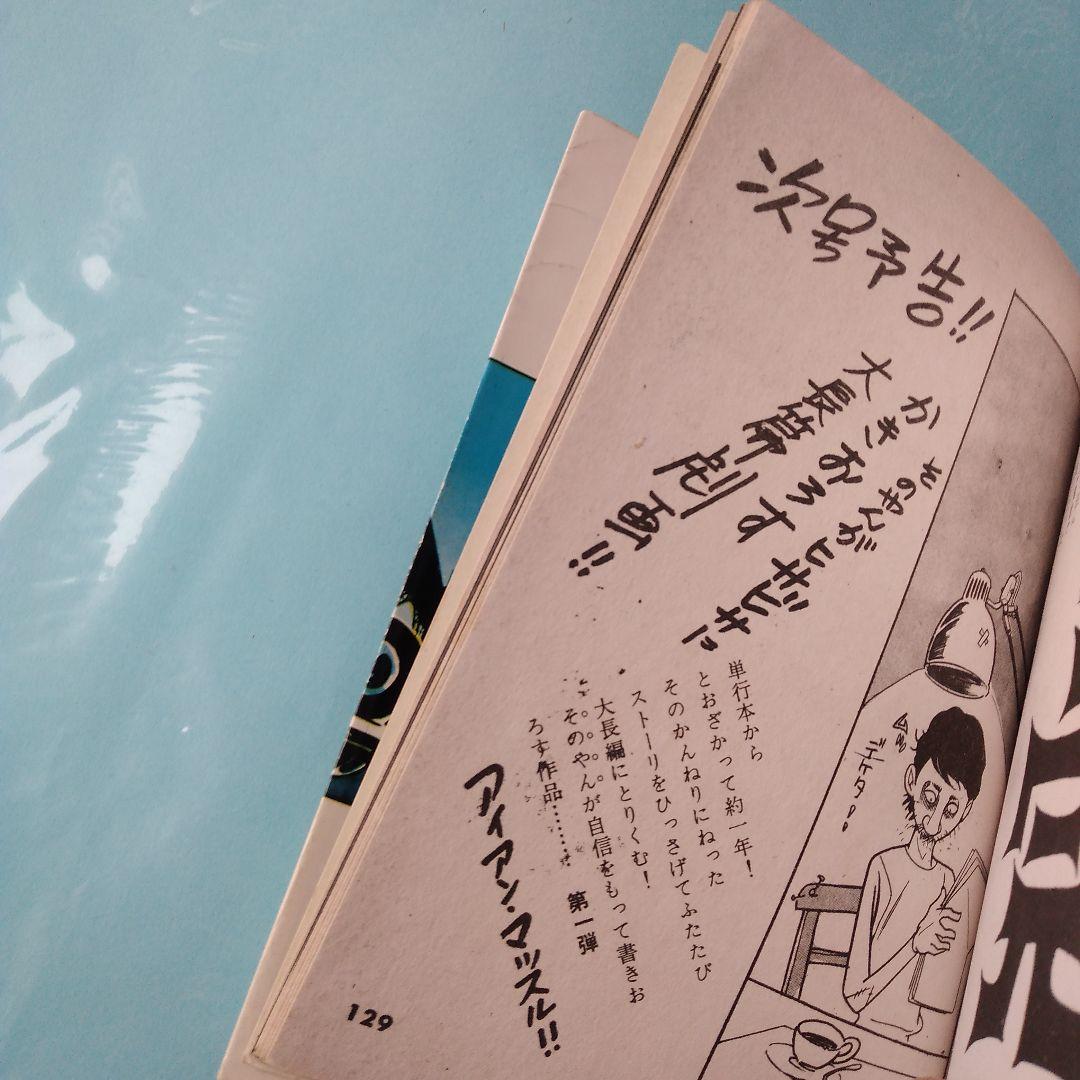 次号予告!!
そのやんが
かきおろすヒサビサに
大長篇
劇画!!
デケタ!
単行本から
とおざかって約一年!
そのかんねりにねった
ストーリをひっさげてふたたび
大長編にとりくむ!
そのやんが自信をもって書きお
ろす作品………
第一弾
アイアン・マッスル!!
129